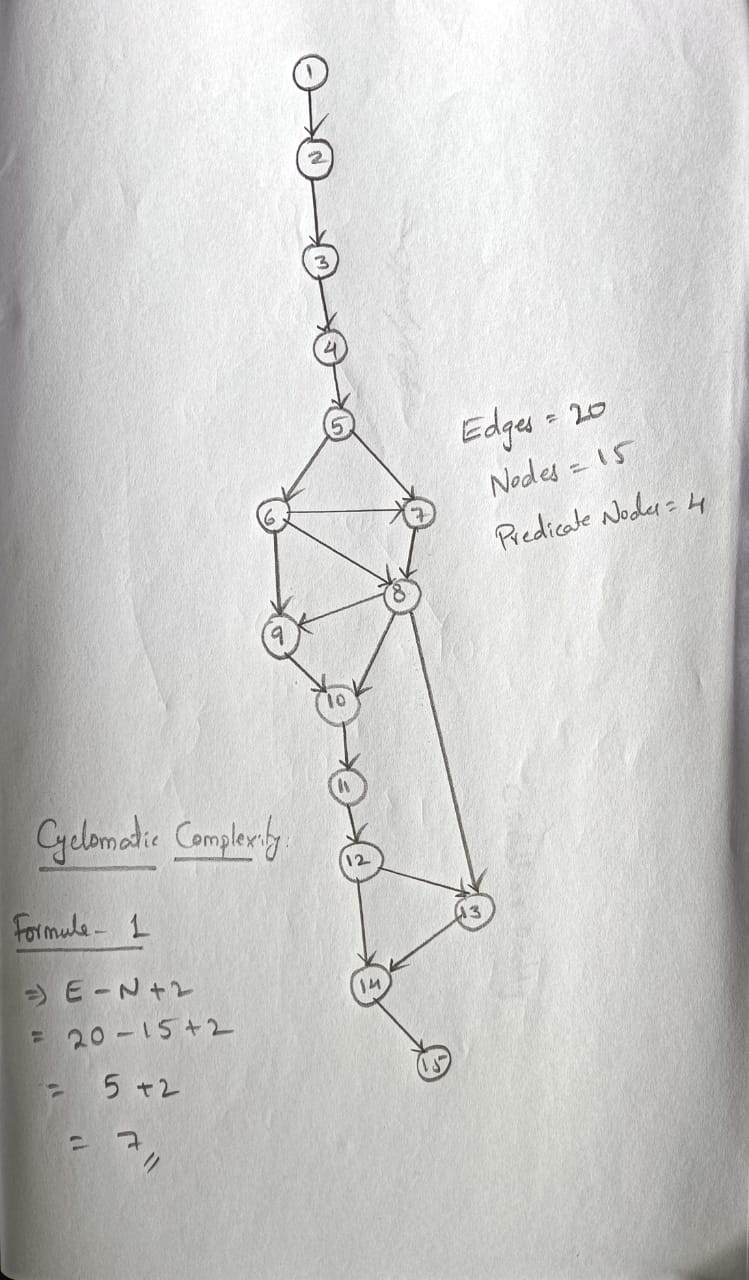 1
2
3
4
5
6
7
8
9
10
11
12
13
14
15
Edges = 20
Nodes = 15
Predicate Nodes = 4
Cyclomatic Complexity:
Formule - 1
⇒ E - N + 2
= 20 - 15 + 2
= 5 + 2
= 7 //